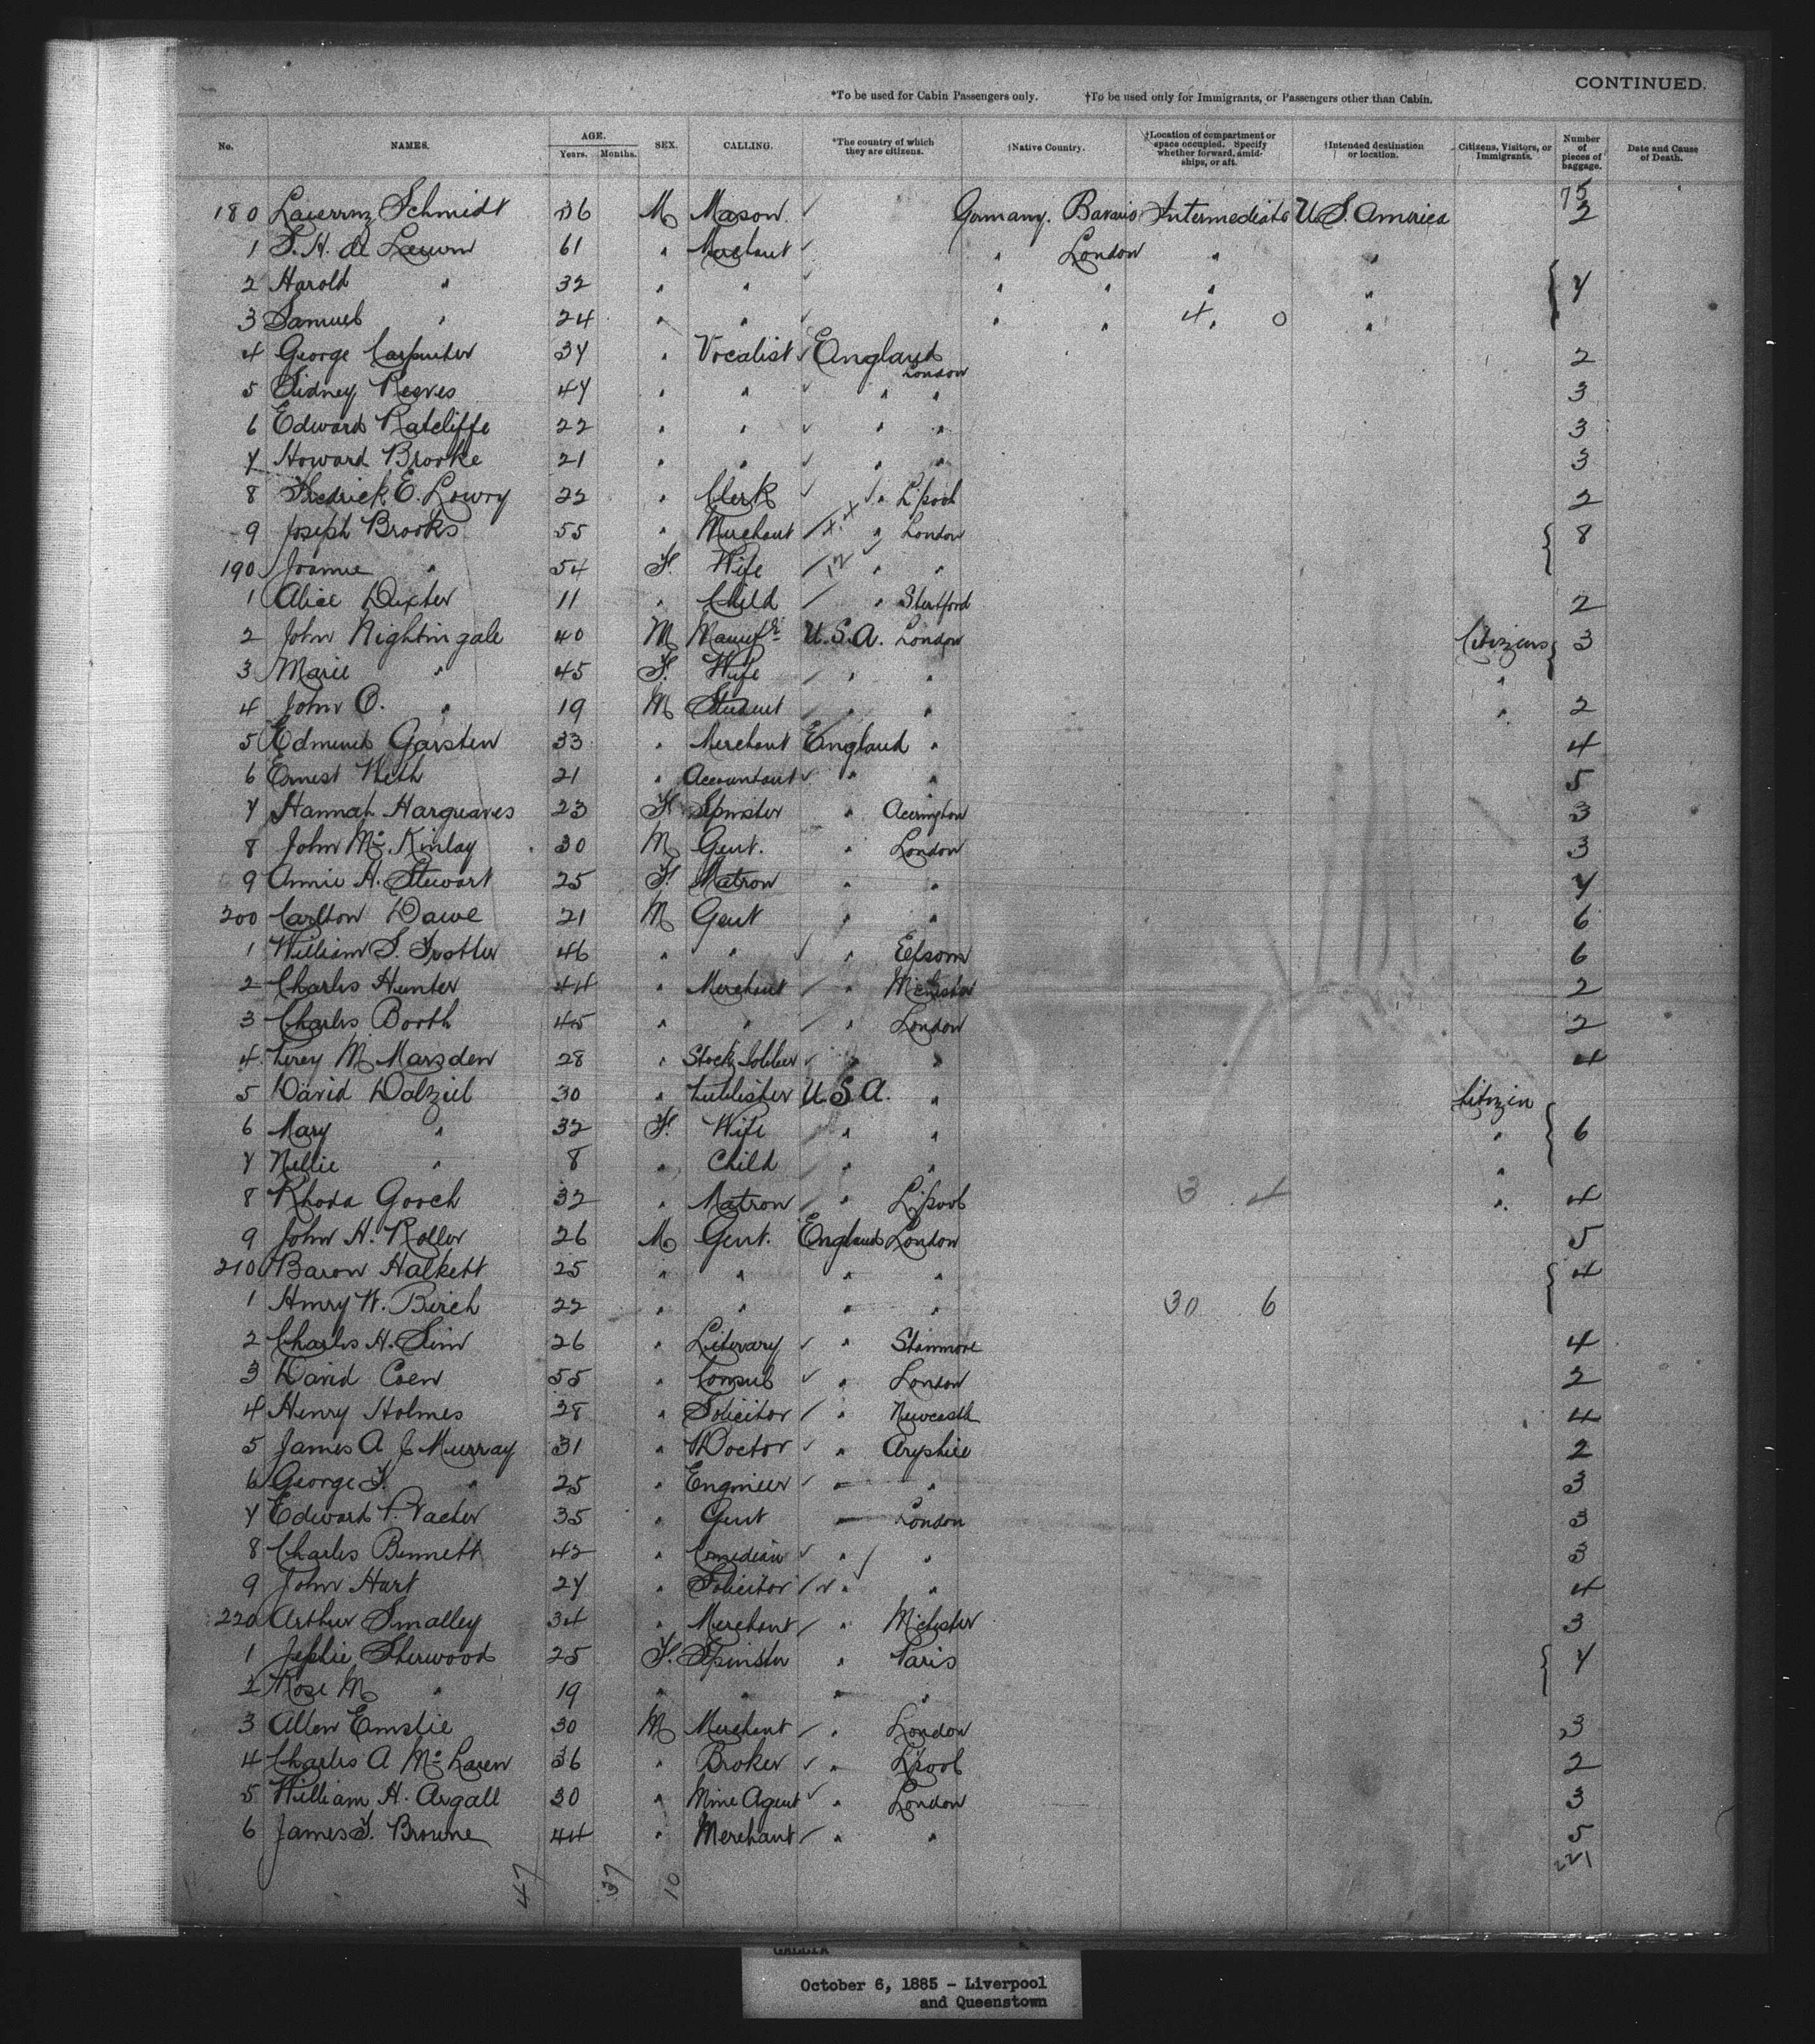 CONTINUED.
*To be used for Cabin Passengers only. †To be used only for Immigrants, or Passengers other than Cabin.
No. NAMES. AGE. Years. Months. SEX. CALLING. *The country of which they are citizens. †Native Country. †Location of compartment or space occupied. Specify whether forward, amidships, or aft. †Intended destination or location. Citizens, Visitors, or Immigrants. Number of pieces of baggage. Date and Cause of Death.
75
180 Schmidt 36 M Mason Germany. Bavaria Intermediate U.S. America 2
1 S. H. de 61 " Merchant " London " "
2 Harold " 32 " " " " " " 7
3 Samuel " 24 " " " " 4 " 0 "
4 George Carpenter 37 " Vocalist England London 2
5 Sidney Reeves 47 " " " " 3
6 Edward Ratcliffe 22 " " " " 3
7 Howard Brooke 21 " " " " 3
8 Fredrick E. Lowry 22 " Clerk " L'pool 2
9 Joseph Brooks 55 " Merchant " London 8
190 " 54 F. Wife " "
1 Alice Dexter 11 " Child " 2
2 John Nightingale 40 M Manufr U.S.A. London Citizens 3
3 Marie " 45 F. Wife " " "
4 John O. " 19 M Student " " " 2
5 Edmund Garsten 33 " Merchant England " 4
6 Ernest 21 " Accountant " " 5
7 Hannah Hargreaves 23 F Spinster " Accrington 3
8 John Mc Kinlay 30 M Gent. " London 3
9 Annie H. Stewart 25 F. Matron " " 7
200 Carlton Dawe 21 M Gent " " 6
1 William S. 46 " " " Epsom 6
2 Charles Hunter 44 " Merchant " M'chester 2
3 Charles Booth 45 " " " London 2
4 Percy M Marsden 28 " Stock Jobber " " 4
5 David Dalziel 30 " Publisher U.S.A. " Citizen
6 Mary " 32 F. Wife " " " 6
7 Nellie " 8 " Child " " "
8 Rhoda Gooch 32 " Matron " L'pool 3 4 " 4
9 John H. Roller 26 M Gent. England London 5
210 Baron Halkett 25 " " " " 4
1 Henry W. Birch 22 " " " " 30 6
2 Charles H. Sim 26 " Literary " Stanmore 4
3 David Coen 55 " Consul " London 2
4 Henry Holmes 28 " Solicitor " Newcastle 4
5 James A J Murray 31 " Doctor " 2
6 George F. " 25 " Engineer " " 3
7 Edward P. Vacher 35 " Gent " London 3
8 Charles Bennett 42 " Comedian " " 3
9 John Hart 27 " Solicitor " " 4
220 Arthur Smalley 34 " Merchant " M'chester 3
1 Sherwood 25 F. Spinster " Paris 7
2 Rose M " 19 " " " "
3 Allen Emslie 30 M Merchant " London 3
4 Charles A Mc Laren 36 " Broker " L'pool 2
5 William H. Argall 30 " Mine Agent " London 3
6 James F. Browne 44 " Merchant " " 5
47 37 10 221
GALLIA
October 6, 1885 - Liverpool
and Queenstown